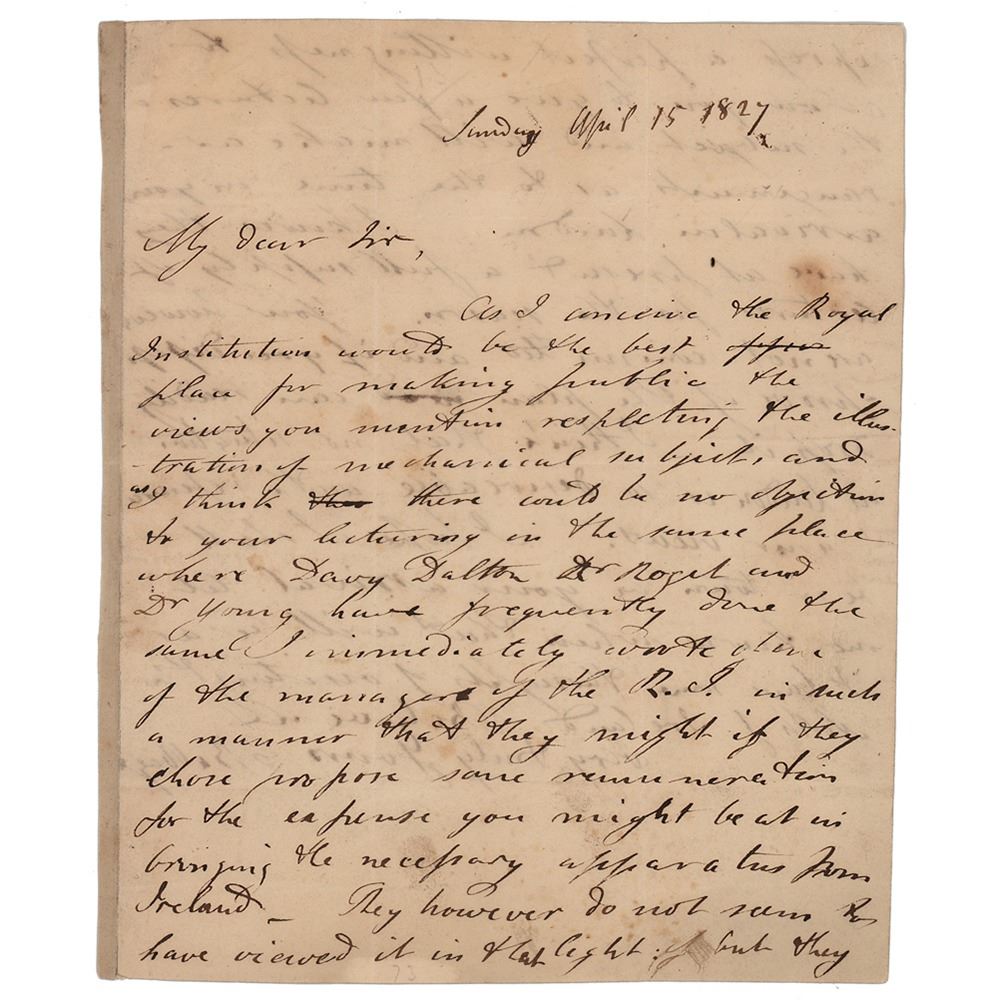 Sunday April 15 1827
My dear Sir,
As I conceive the Royal
Institution would be the best
place for making public the
views you mention respecting the illus-
tration of mechanical subjects, and
as I think there could be no objection
to your lecturing in the same place
where Davy Dalton Dr Roget and
Dr Young have frequently done the
same I immediately wrote
of the managers of the R. I. in such
a manner that they might if they
chose propose some remuneration
for the expense you might be at in
bringing the necessary apparatus from
Ireland _ They however do not seem to
have viewed it in that light: but they